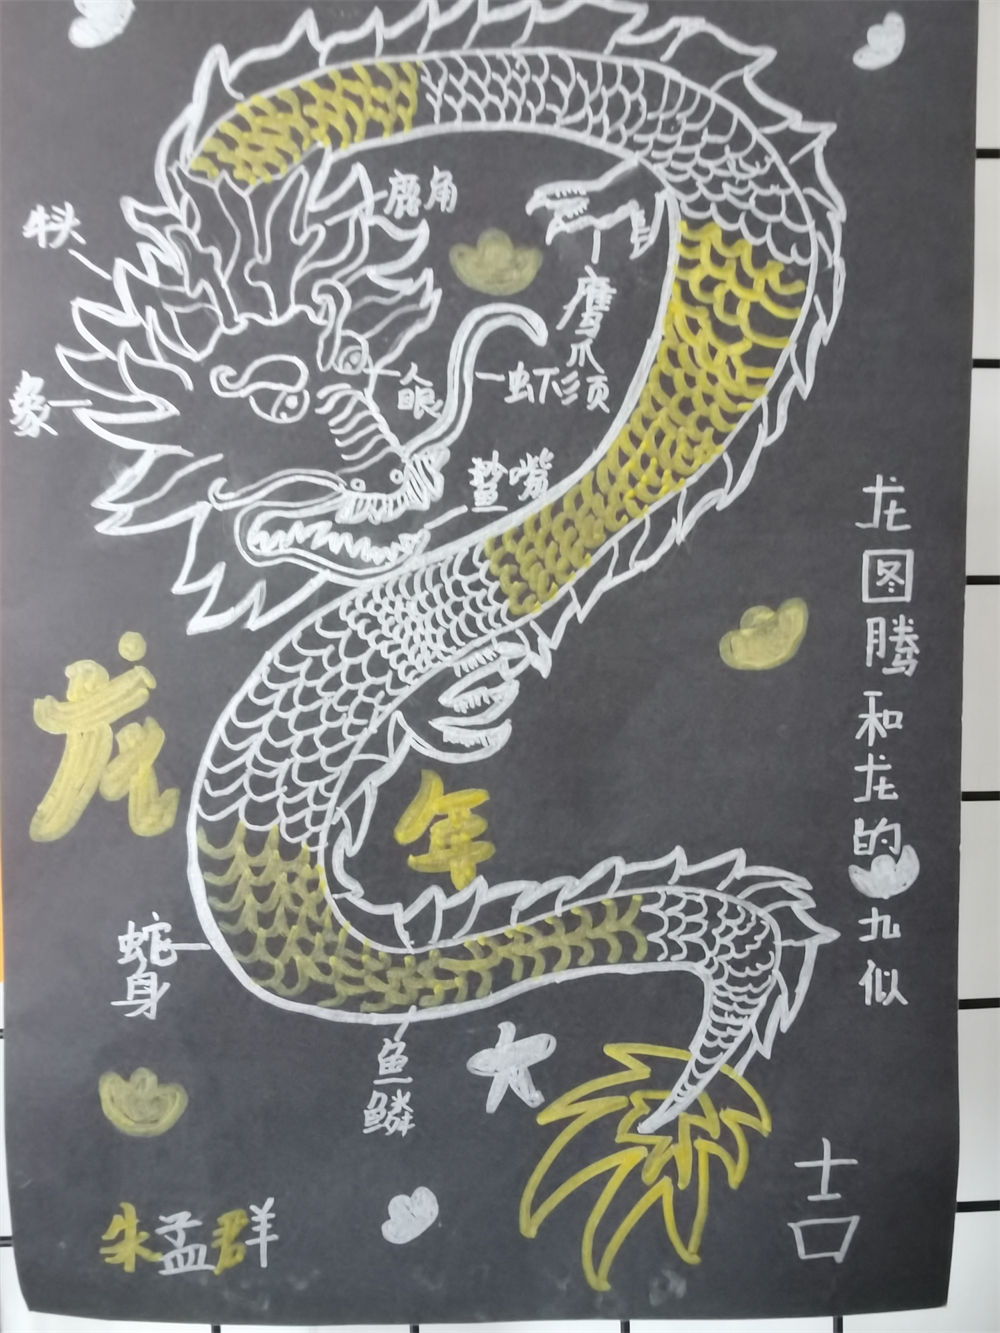 鹿角
牛头
鹰爪
人眼
虾须
象
鲨嘴
龙图腾和龙的九似
龙年大吉
蛇身
鱼鳞
朱孟群